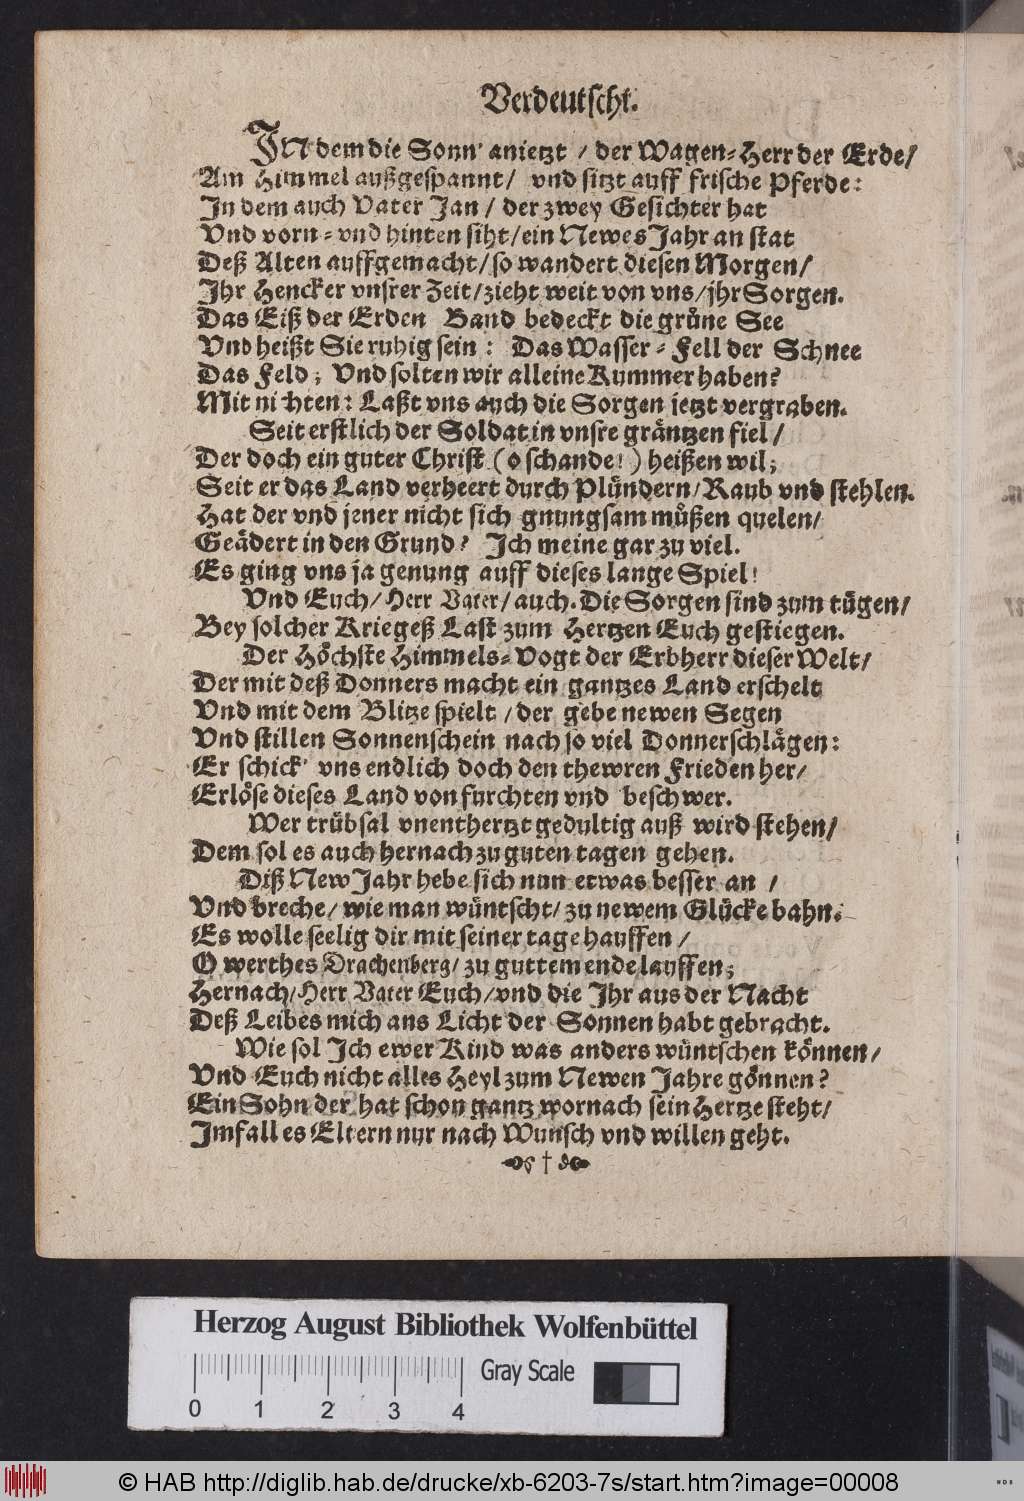 Verdeutscht.
IN dem die Sonn' anietzt / der Wagen-Herr der Erde/
Am Himmel außgespannt/ vnd sitzt auff frische Pferde:
In dem auch Vater Jan / der zwey Gesichter hat
Vnd vorn-vnd hinten siht/ein Newes Jahr an stat
Deß Alten auffgemacht/so wandert diesen Morgen/
Ihr Hencker vnsrer Zeit/zieht weit von vns/jhr Sorgen.
Das Eiß der Erden Band bedeckt die grüne See
Vnd heißt Sie ruhig sein: Das Wasser-Fell der Schnee
Das Feld; Vnd solten wir alleine Kummer haben?
Mit nichten: Laßt vns auch die Sorgen jetzt vergraben.
Seit erstlich der Soldat in vnsre gräntzen fiel/
Der doch ein guter Christ (o schande!) heißen wil;
Seit er das Land verheert durch Plündern/Raub vnd stehlen.
Hat der vnd jener nicht sich gnungsam müßen quelen/
Geädert in den Grund? Ich meine gar zu viel.
Es ging vns ja genung auff dieses lange Spiel!
Vnd Euch/Herr Vater/auch. Die Sorgen sind zum tügen/
Bey solcher Kriegeß Last zum Hertzen Euch gestiegen.
Der Höchste Himmels-Vogt der Erbherr dieser Welt/
Der mit deß Donners macht ein gantzes Land erschelt
Vnd mit dem Blitze spielt /der gebe newen Segen
Vnd stillen Sonnenschein nach so viel Donnerschlägen:
Er schick' vns endlich doch den thewren Frieden her/
Erlöse dieses Land von furchten vnd beschwer.
Wer trübsal vnenthertzt gedultig auß wird stehen/
Dem sol es auch hernach zu guten tagen gehen.
Diß New Jahr hebe sich nun etwas besser an /
Vnd breche/ wie man wüntscht/ zu newem Glücke bahn.
Es wolle seelig dir mit seiner tage hauffen /
O werthes Drachenberg/ zu guttem ende lauffen;
Hernach/Herr Vater Euch/vnd die Ihr aus der Nacht
Deß Leibes mich ans Licht der Sonnen habt gebracht.
Wie sol Ich ewer Kind was anders wüntschen können/
Vnd Euch nicht alles Heyl zum Newen Jahre gönnen?
Ein Sohn der hat schon gantz wornach sein Hertze steht/
Im fall es Eltern nur nach Wunsch vnd willen geht.
Herzog August Bibliothek Wolfenbüttel
Gray Scale
0 1 2 3 4
© HAB http://diglib.hab.de/drucke/xb-6203-7s/start.htm?image=00008